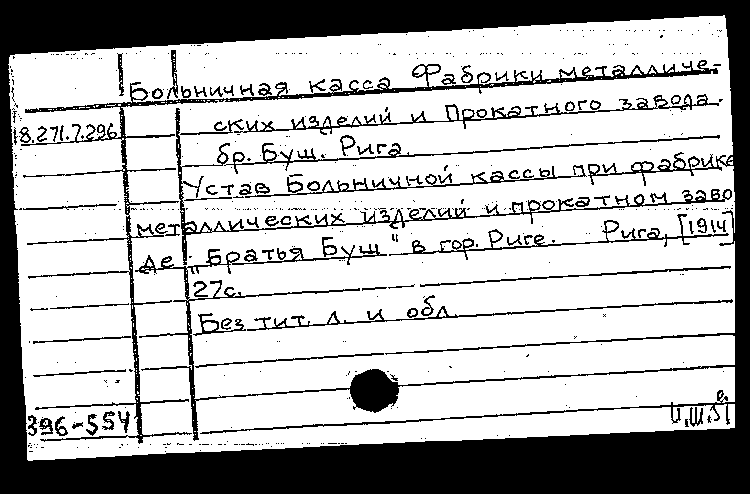 Больничная касса Фабрики металличе-
18.271.7.296
ских изделий и Прокатного завода.
бр. Буш. Рига.
Устав Больничной кассы при фабрике
металлических изделий и прокатном заво
де „Братья Буш“ в гор. Риге. Рига, [1914]
27с.
Без тит. л. и обл.
396-554